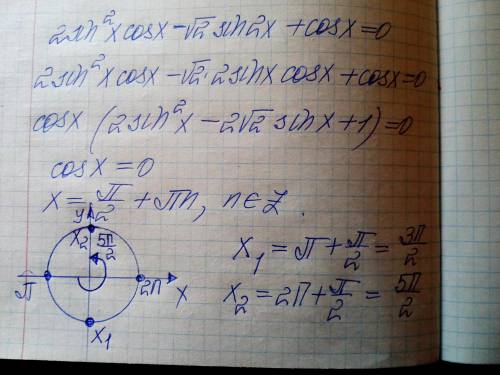 2sin²x cosx - √2 sin2x + cosx = 0
2sin²x cosx - √2·2sinx cosx + cosx = 0
cosx (2sin²x - 2√2 sinx + 1) = 0
cosx = 0
x = π/2 + πn, n ∈ Z.
y
x₂ 5π/2
π 2π x
x₁
x₁ = π + π/2 = 3π/2
x₂ = 2π + π/2 = 5π/2